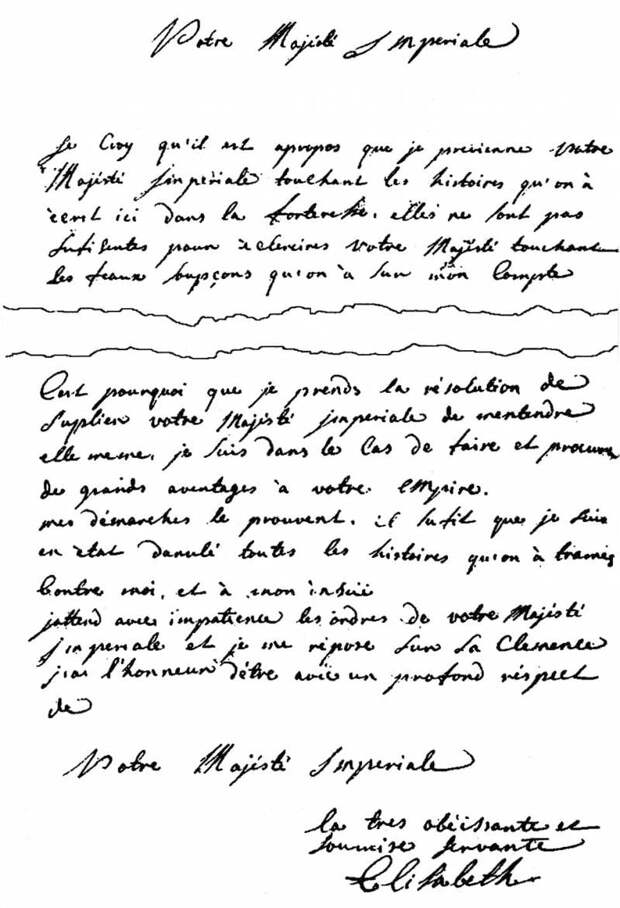 Votre Majesté Imperiale
Je Croy qu'il est apropos que je previenne votre
Majésté jmpèriale touchant les histoires qu'on à
ècrit ici dans la forteresse. elles ne sont pas
sufisentes pour èclereires votre Majésté touchant
les feaux soupçons qu'on à sur mon Compte
C'est pourquoi que je prends la résolution de
suplier votre Majésté jmperiale de mentendre
elle meme, je suis dans le Cas de faire et procurer
de grands aventages à votre Empire.
mes démarches le prouvent. il sufit que je suis
en ètat danulé toutes les histoires qu'on à tramés
Contre moi, et à mon insüü
jattend avec impatience les ordres de votre Majésté
jmperiale et je me répose sur sa Clemence
jai l'honneur d'être avec un profond réspect
de
Votre Majésté Imperiale
la tres obéissante et
soumise servante
Elisabeth